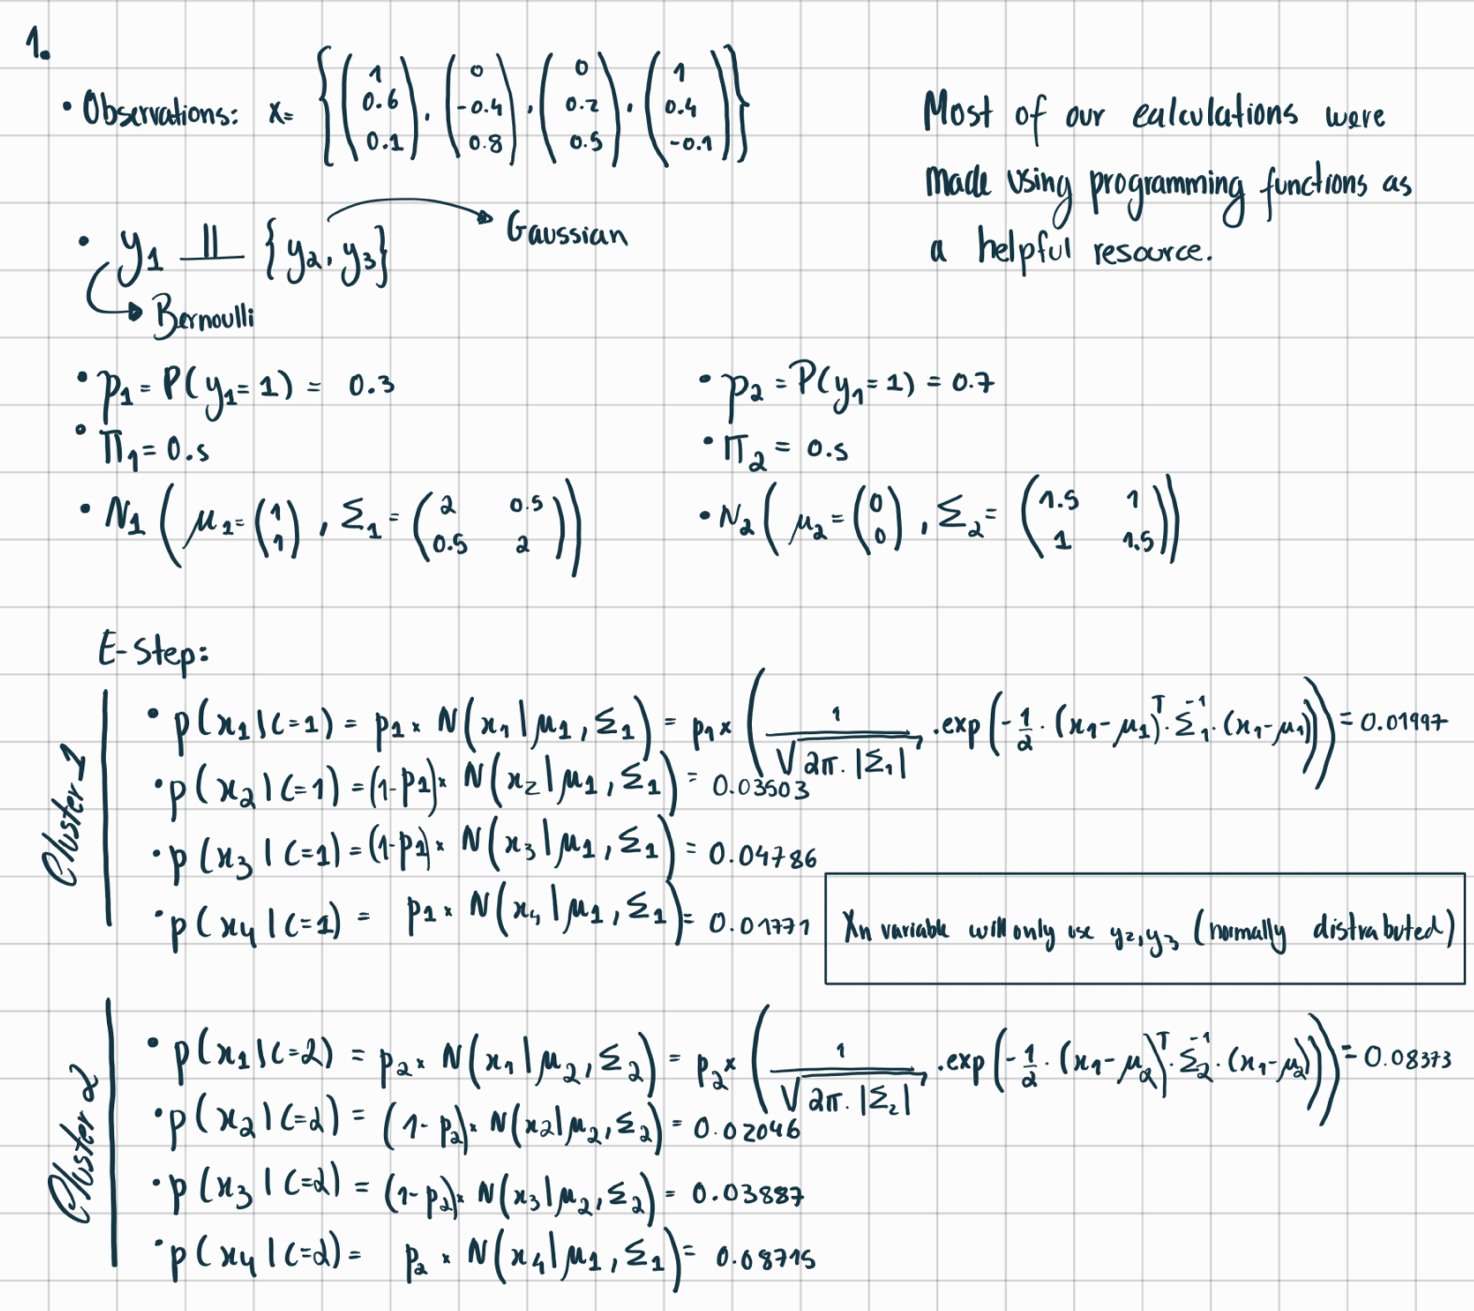 1.
• Observations: x= {(1 0.6 0.1), (0 -0.4 0.8), (0 0.2 0.5), (1 0.4 -0.1)}
Most of our calculations were
made using programming functions as
a helpful resource.
• y₁ ⫫ {y₂, y₃} → Gaussian
→ Bernoulli
• p₁ = P(y₁=1) = 0.3
• Π₁ = 0.5
• N₁ (μ₁= (1 1), Σ₁ = (2 0.5 0.5 2))
• p₂ = P(y₁=1) = 0.7
• Π₂ = 0.5
• N₂ (μ₂ = (0 0), Σ₂ = (1.5 1 1 1.5))
E-Step:
Cluster 1
• p(x₁|C=1) = p₁ × N(x₁|μ₁, Σ₁) = p₁ × (1/√2π.|Σ₁| .exp(-1/2 · (x₁-μ₁)ᵀ· Σ₁⁻¹· (x₁-μ₁))) = 0.01997
• p(x₂|C=1) = (1-p₁) × N(x₂|μ₁, Σ₁) = 0.03503
• p(x₃|C=1) = (1-p₁) × N(x₃|μ₁, Σ₁) = 0.04786
• p(x₄|C=1) = p₁ × N(x₄|μ₁, Σ₁) = 0.01771
Xn variable will only use y₂,y₃ (normally distrabuted)
Cluster 2
• p(x₁|C=2) = p₂ × N(x₁|μ₂, Σ₂) = p₂ × (1/√2π.|Σ₂| .exp(-1/2 · (x₁-μ₂)ᵀ· Σ₂⁻¹· (x₁-μ₂))) = 0.08373
• p(x₂|C=2) = (1-p₂) × N(x₂|μ₂, Σ₂) = 0.02046
• p(x₃|C=2) = (1-p₂) × N(x₃|μ₂, Σ₂) = 0.03887
• p(x₄|C=2) = p₂ × N(x₄|μ₁, Σ₁) = 0.08715